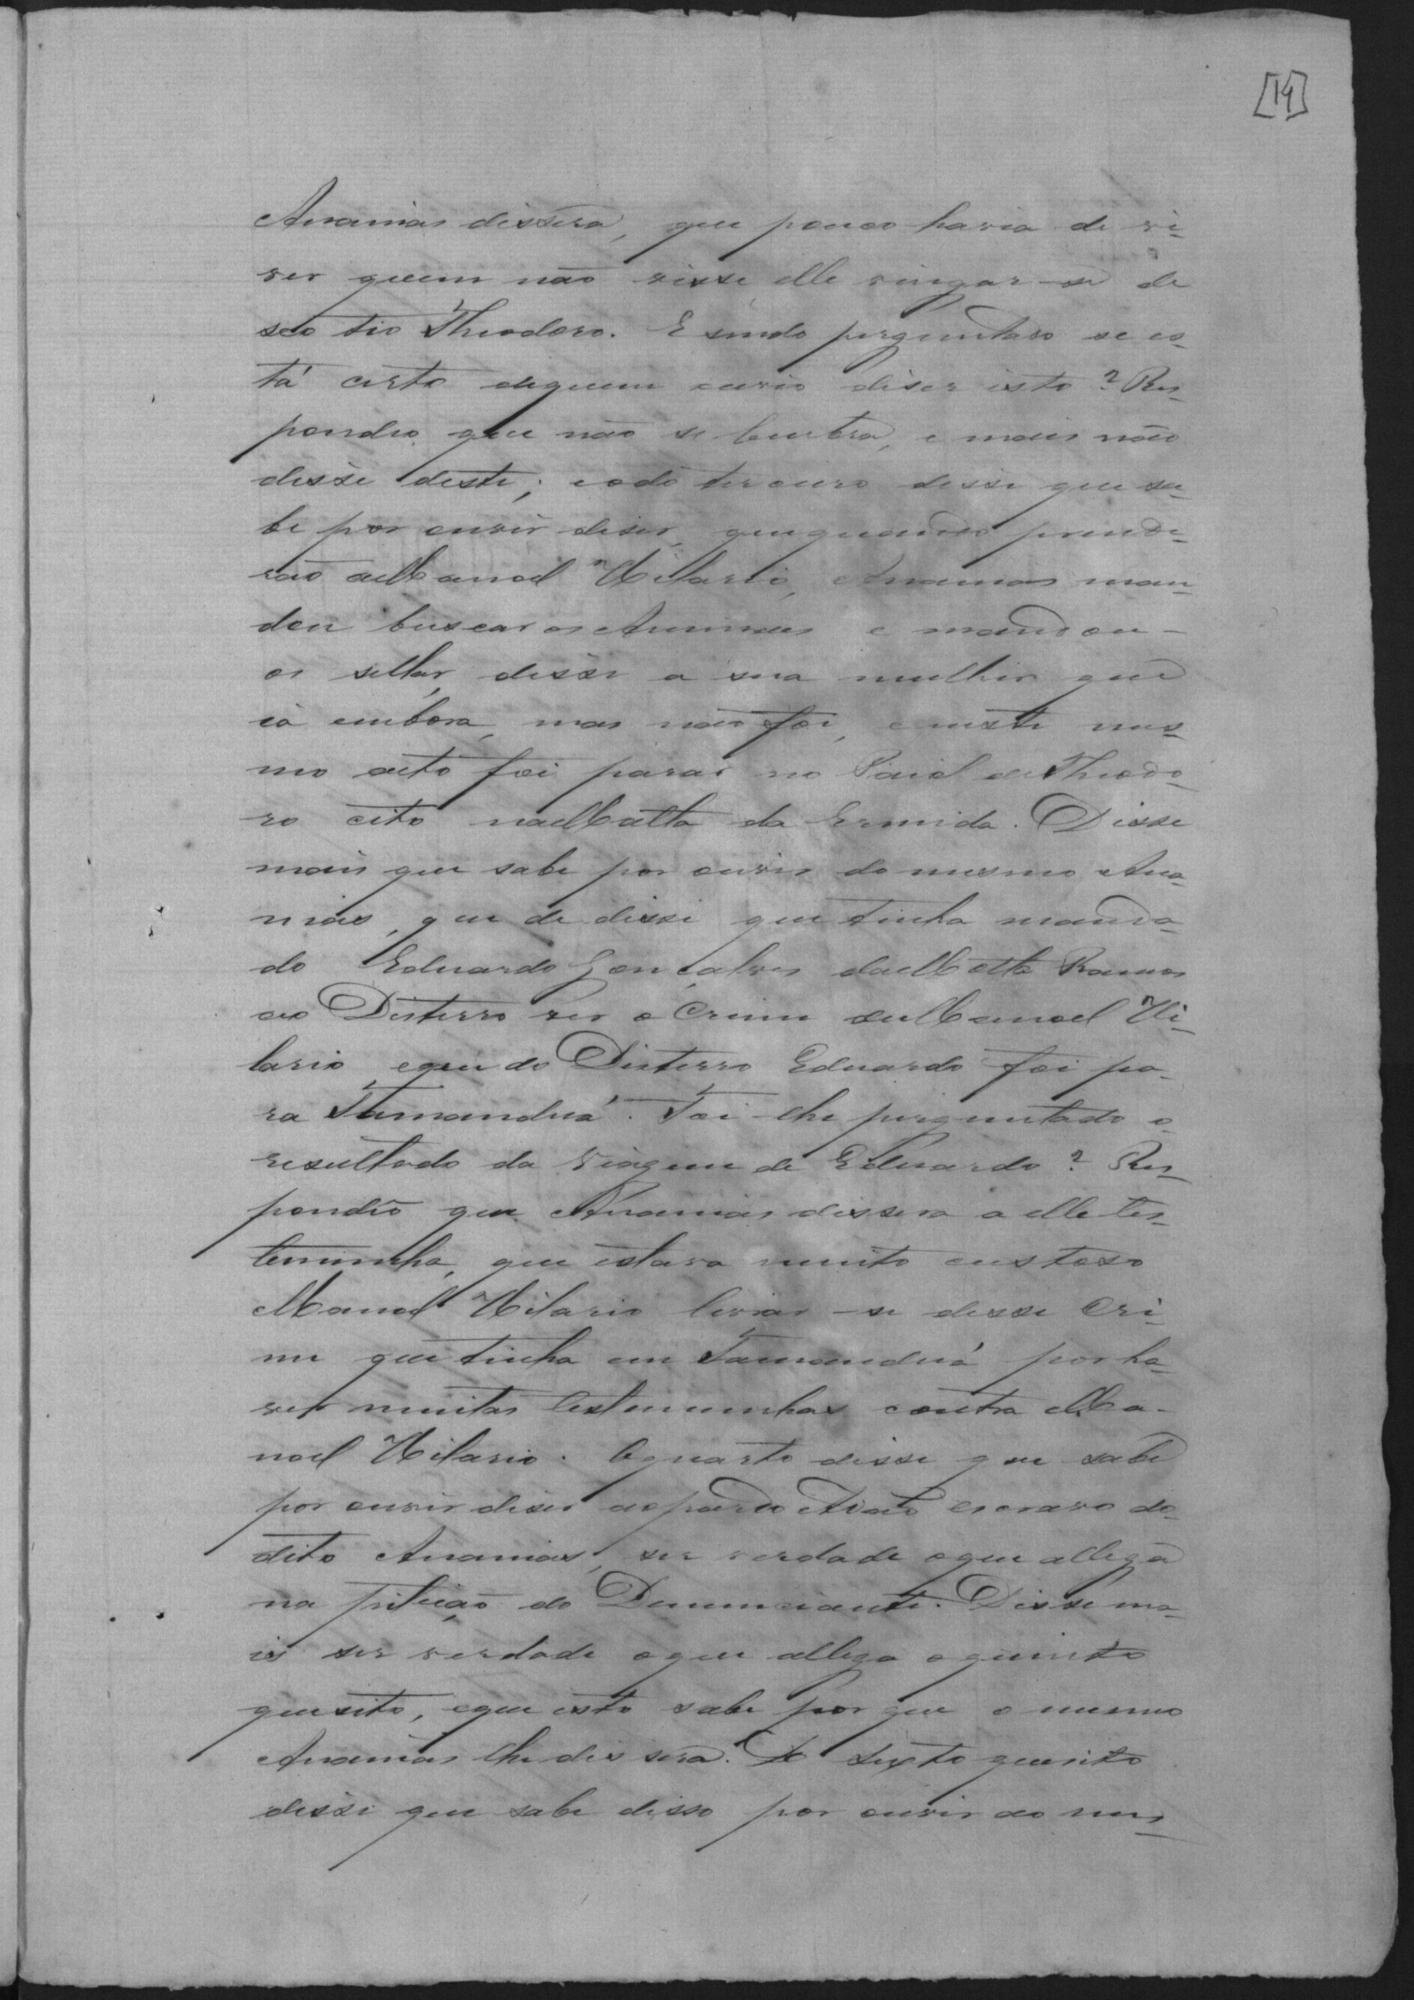 [14]
Ananias dissera, que pouco havia de vi-
ver quem não visse elle vingar-se de
seo tio Theodoro. E sendo perguntado se es-
tá certo dequem ouvio diser isto? Res-
pondeo que não se lembra, e mais não
disse deste; eodo terceiro disse que sa-
be por ouvir diser, quequando prende-
rão aManoel Hilario, Ananias man-
dou buscar os Animaes e mandou-
os sellar, disse a sua mulher que
ia embora, mas não foi, e neste mes-
mo acto foi parar no Paiol de Theodo-
ro cito naMatta da Ermida. Disse
mais que sabe por ouvir do mesmo Ana-
nias, que de disse que tinha manda-
do Eduardo Gonçalves daMotta Ramos
ao Disterro ver o Crime deManoel Hi-
lario, eque do Disterro Eduardo foi pa-
ra Tamanduá. Foi-lhe perguntado o
resultado da viagem de Eduardo? Res-
pondeo que Ananias dissera a elle tes-
temunha, que estava muito custoso
Manoel Hilario livrar-se desse Cri-
me que tinha em Tamanduá por ha-
ver muitas testemunhas contra Ma-
noel Hilario. Oquarto disse que sabe
por ouvir diser aopardo Adão escravo do
dito Ananias, ser verdade oque allega
na petição do Denunciante. Disse ma-
is ser verdade oque allega oquinto
quesito, eque isto sabe por que o mesmo
Ananias lhe dissera. Ao sexto quesito
disse que sabe disso por ouvir ao mes-